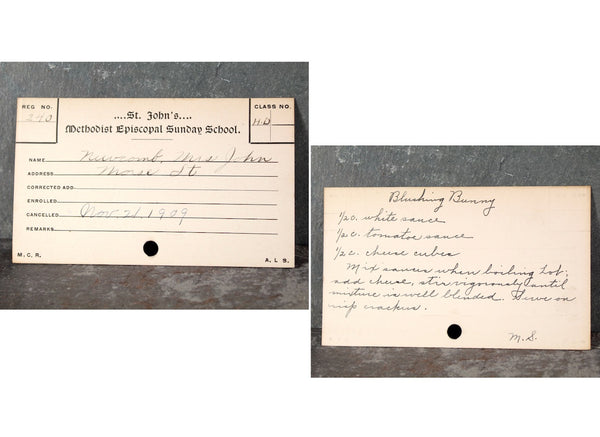 REG NO.
240
....St. John's....
Methodist Episcopal Sunday School.
CLASS NO.
H.D
NAME Newcomb, Mrs John
ADDRESS Morse St
CORRECTED ADD.
ENROLLED
CANCELLED Nov. 21, 1909
REMARKS
M. C. R.
A. L. B.
Blushing Bunny
1/2 c. white sauce
1/2 c. tomatoe sauce
1/2 c. cheese cubes
Mix sauces when boiling hot;
add cheese, stir vigorously until
mixture is well blended. Serve on
crisp crackers.
M. S.